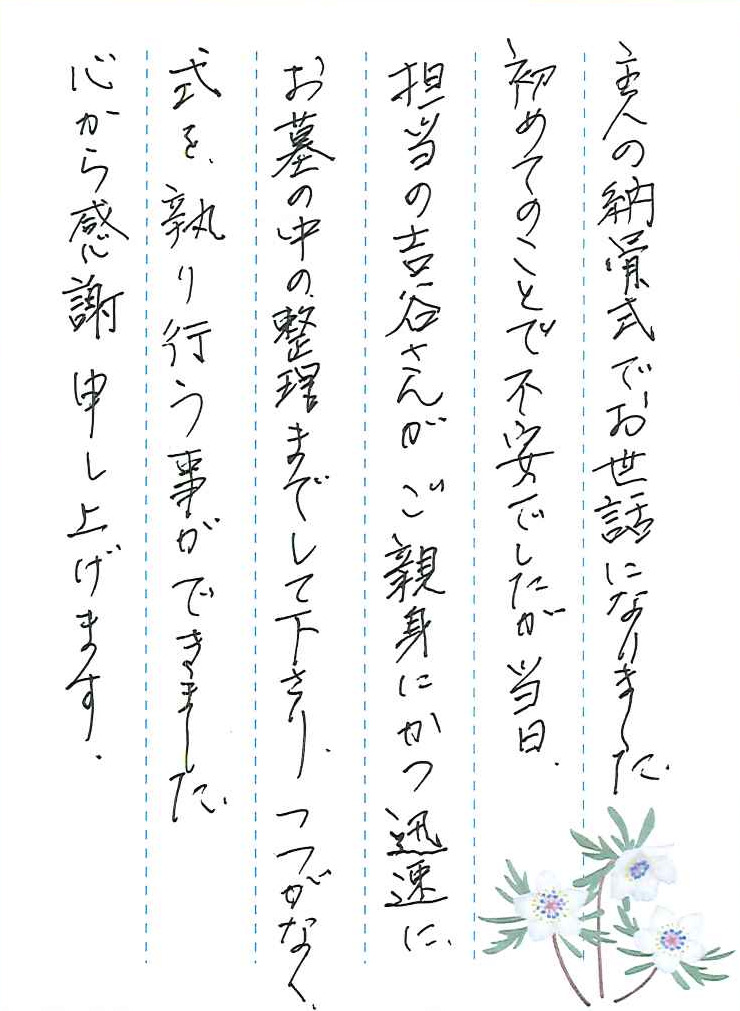 主人の納骨式でお世話になりました.
初めてのことで不安でしたが当日.
担当の吉谷さんがご親身にかつ迅速に.
お墓の中の整理までして下さり、つつがなく、
式を、執り行う事ができました.
心から感謝申し上げます.